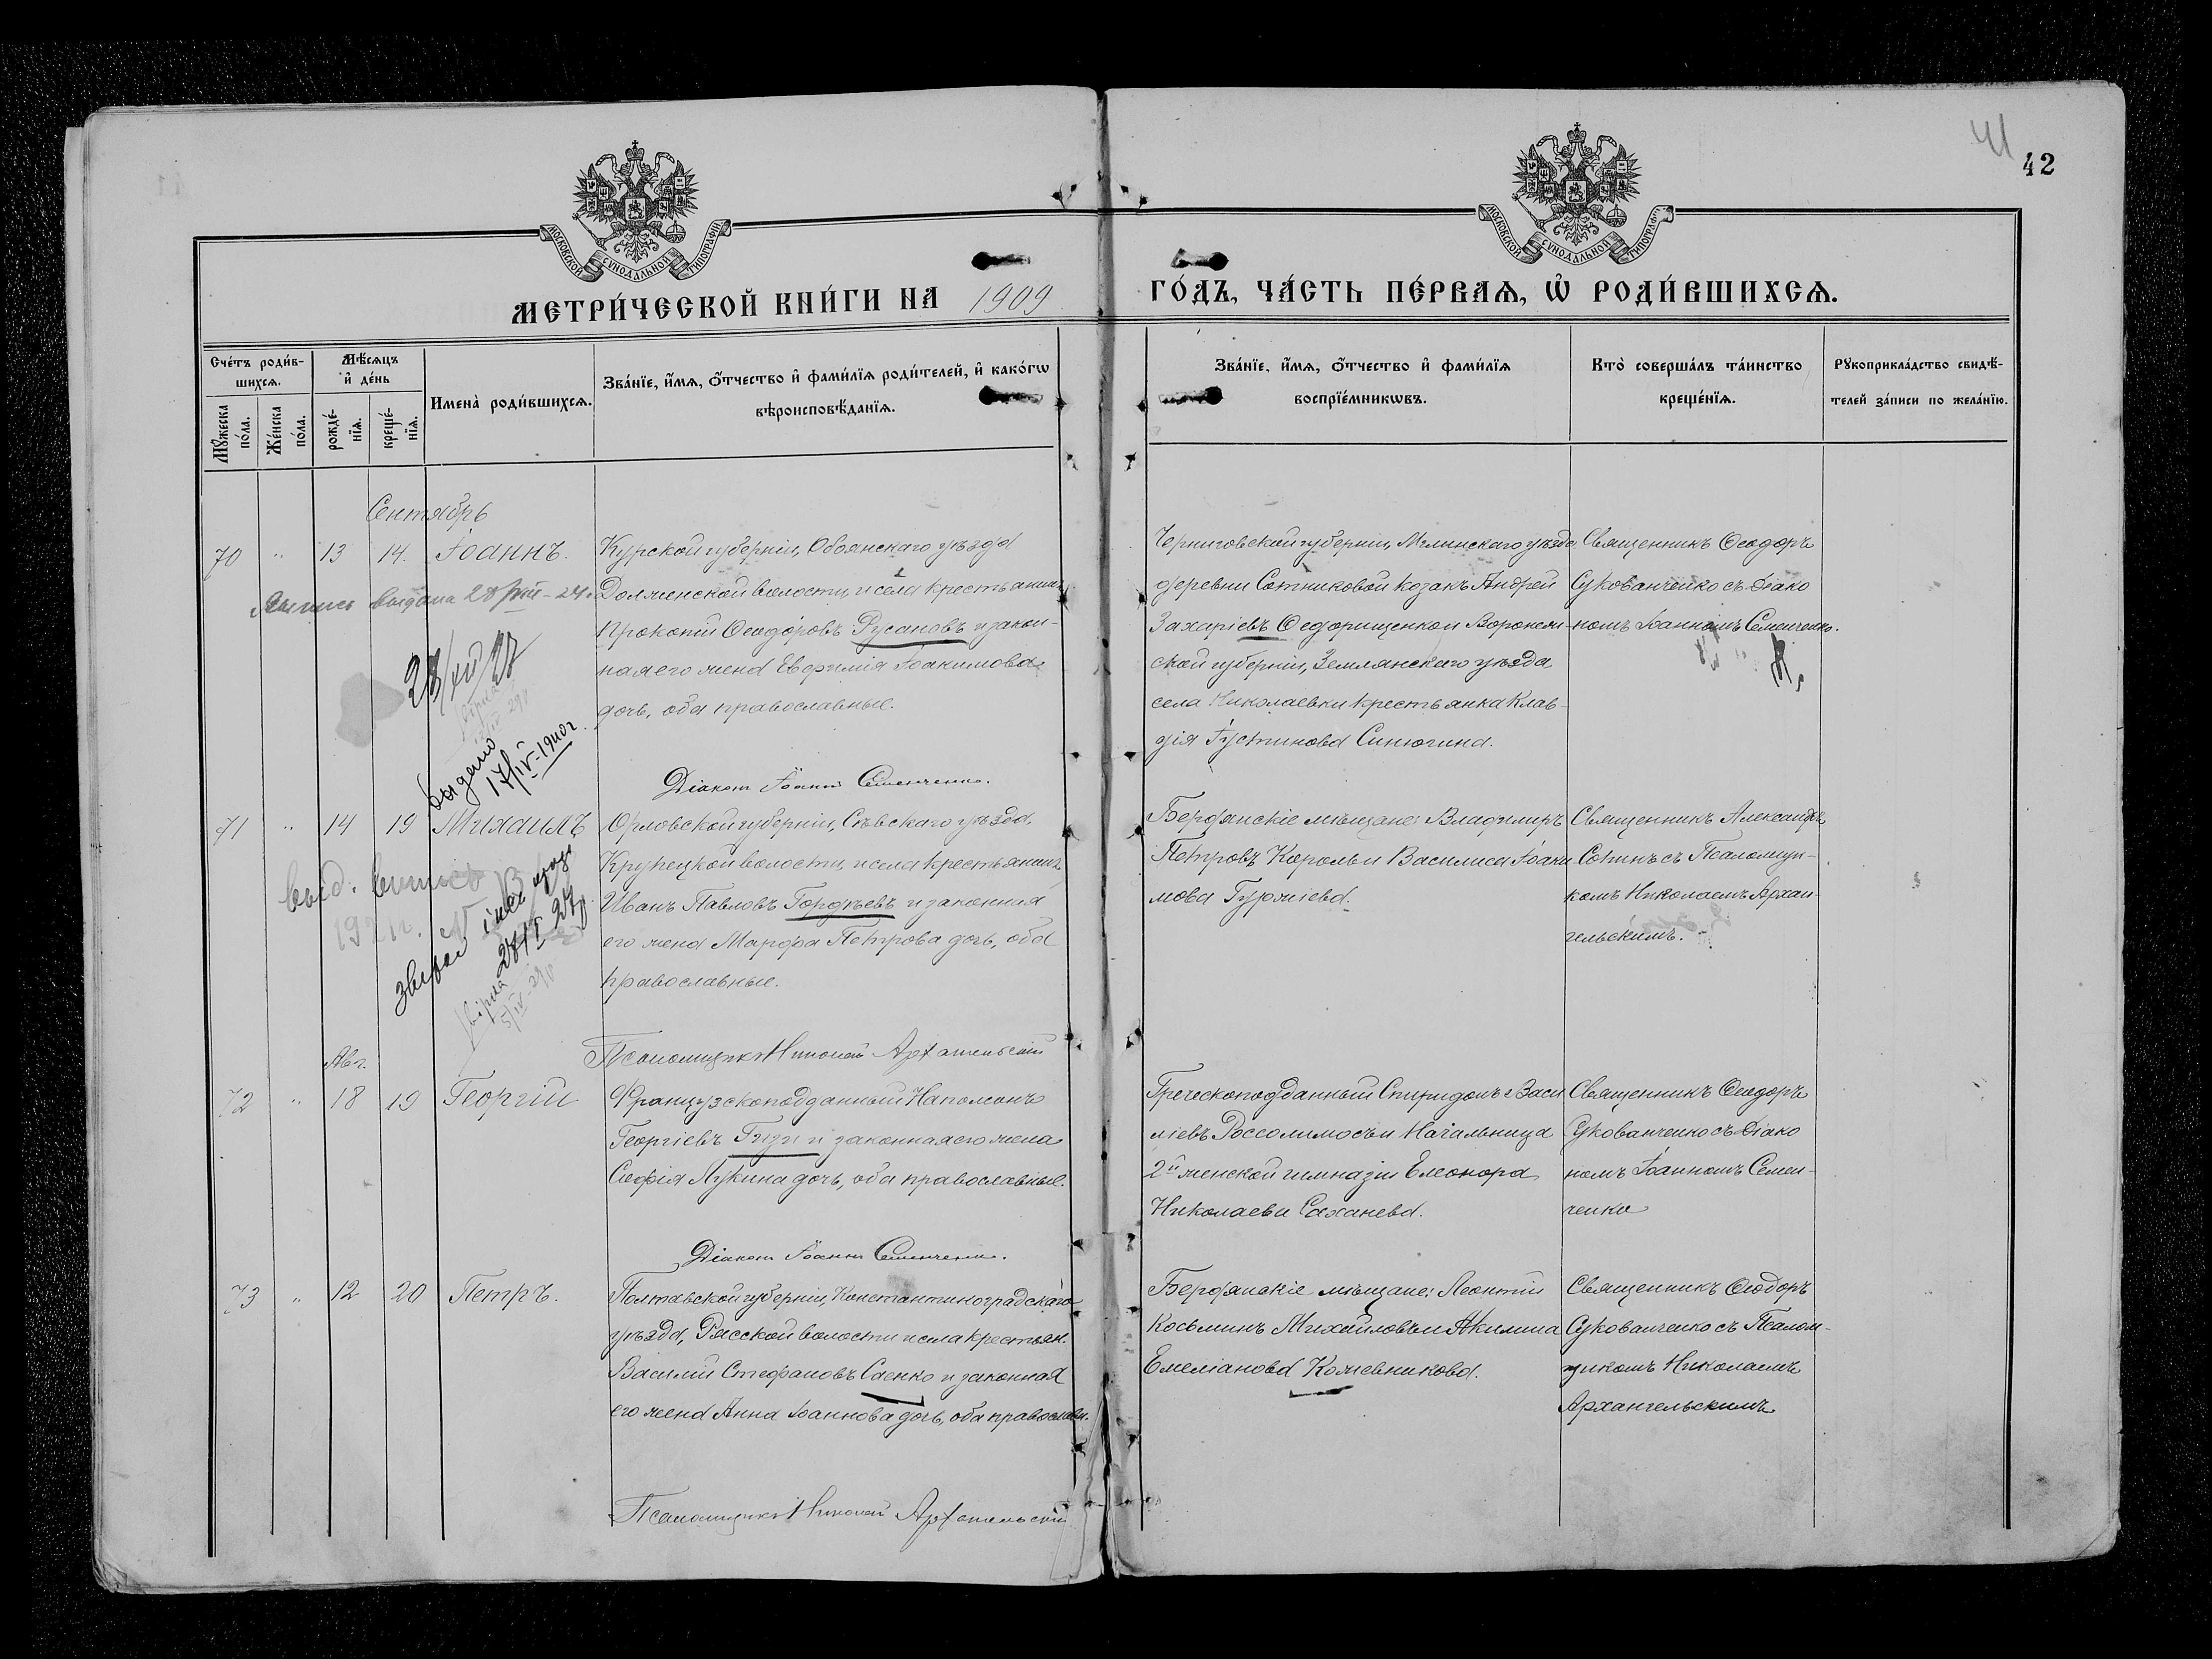 41
42
МОСКОВСКОЙ СѴНОДАЛЬНОЙ ТИПОГРАФІИ
МОСКОВСКОЙ СѴНОДАЛЬНОЙ ТИПОГРАФІИ
МЕТРИ́ЧЕСКОЙ КНИ́ГИ НА 1909
ГО́ДЪ, ЧА́СТЬ ПЕ́РВАЯ, Ѡ РОДИ́ВШИХСЯ.
Сче́тъ роди́в-
шихся.
Мѣ́сяцъ
и҆ де́нь
Мꙋ́жеска
по́ла.
Же́нска
по́ла.
рожде́-
нїя.
креще́-
нїя.
Имена̀ роди́вшихся.
Зва́нїе, и҆́мя, ѻ҆́тчество и҆ фами́лїя роди́телей, и҆ како́гѡ
вѣроисповѣ́данїя.
Зва́нїе, и҆́мя, ѻ҆́тчество и҆ фами́лїя
воспрїе́мникѡвъ.
Кто̀ соверша́лъ та́инство
креще́нїя.
Рꙋкоприкла́дство свидѣ́-
телей за́писи по жела́нїю.
Сентябрь
70 " 13 14. Іоаннъ.
Курской губерніи, Обоянскаго уѣзда
Долженской волости и села крестьянинъ
Прокопій Ѳеодоровъ Русановъ и закон-
ная его жена Евфимія Іоакимова
дочь, оба православные.
Діаконъ Іоаннъ Семенченко.
Черниговской губерніи, Мглинскаго уѣзда
деревни Сотниковой козакъ Андрей
Захаріевъ Ѳедорищенко и Воронеж-
ской губерніи, Землянскаго уѣзда
села Николаевки крестьянка Клав-
дія Іустинова Синюгина.
Священникъ Ѳеодоръ
Сукованченко съ діако
номъ Іоанномъ Семенченко.
выдана 28/VIII-24.
28/XII 27
выдано
17/IV-1940г.
71 " 14 19 Михаилъ
Орловской губерніи, Сѣвскаго уѣзда,
Крупецкой волости и села крестьянинъ
Иванъ Павловъ Гордѣевъ и законная
его жена Марфа Петрова дочь, оба
православные.
Псаломщикъ Николай Архангельскій
Бердянскіе мѣщане: Владимиръ
Петровъ Король и Василиса Іоаки
мова Гуржіева.
Священникъ Александръ
Сопинъ съ Псаломщи-
комъ Николаемъ Архан-
гельскимъ.
выд.
5/IV-29р
Авг.
72 " 18 19 Георгій
Французскоподданный Наполеонъ
Георгіевъ и законная его жена
Софія Лукина дочь, оба православные.
Діаконъ Іоаннъ Семенченко.
Греческоподданный Спиридонъ Васи
ліевъ Россолимосъ и Начальница
2й женской гимназіи Елеонора
Николаева Саханева.
Священникъ Ѳеодоръ
Сукованченко съ діако
номъ Іоанномъ Семен-
ченко
73 " 12 20 Петръ.
Полтавской губерніи, Константиноградскаго
уѣзда, Рясской волости и села крестьян.
Василій Стефановъ Саенко и законная
его жена Анна Іоаннова дочь, оба православн.
Псаломщикъ Николай Архангельскій
Бердянскіе мѣщане: Леонтій
Косьминъ Михайловъ и Акилина
Емеліанова Кожевникова.
Священникъ Ѳеодоръ
Сукованченко съ Псалом-
щикомъ Николаемъ
Архангельскимъ